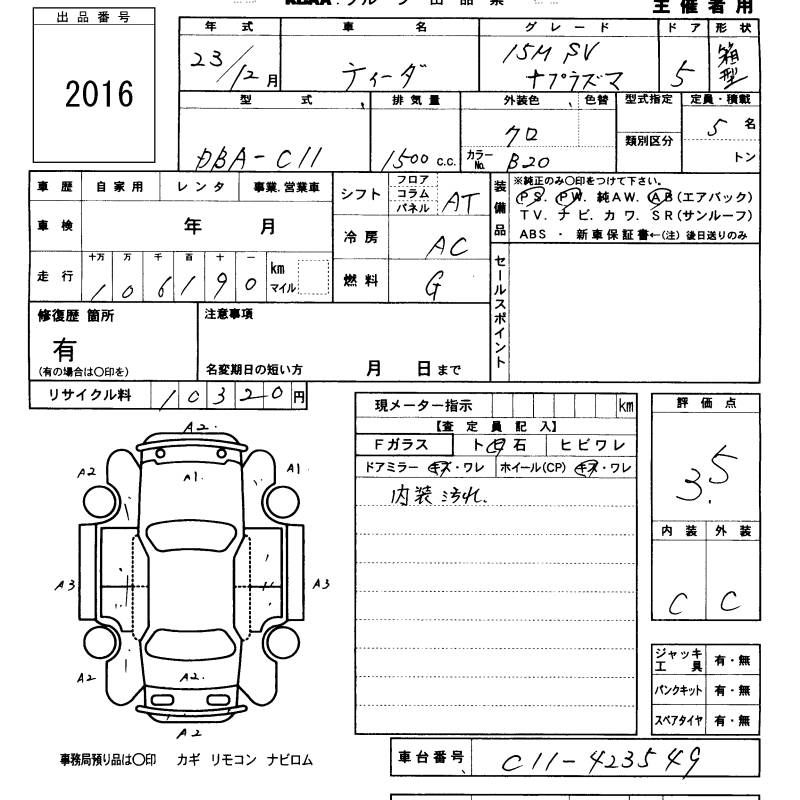 主催者用
出品番号
2016
年式 車名 グレード ドア 形状
23/12月 ティーダ 15M SV +プラズマ 5 箱型
型式 排気量 外装色 色替 型式指定 定員・積載
DBA-C11 1500 c.c. クロ 類別区分 5名
カラーNo. B20 トン
車歴 自家用 レンタ 事業.営業車
車検 年 月
シフト フロア コラム パネル AT
冷房 AC
燃料 G
走行 十万 万 千 百 十 一
106190 km マイル
装備品 ※純正のみ〇印をつけて下さい。
PS. PW. 純AW. AB(エアバック)
TV. ナビ. カワ. SR(サンルーフ)
ABS ・ 新車保証書←(注) 後日送りのみ
セールスポイント
修復歴 箇所 注意事項
有
(有の場合は〇印を) 名変期日の短い方 月 日まで
リサイクル料 10320円
現メーター指示 km
【査定員記入】
Fガラス ト日石 ヒビワレ
ドアミラー キズ・ワレ ホイール(CP) キズ・ワレ
内装汚れ.
評価点
3.5
内装 外装
C C
A2
A2 A1 A1
A3 A3
A2 A2 A2
A2
ジャッキ 工具 有・無
パンクキット 有・無
スペアタイヤ 有・無
事務局預り品は〇印 カギ リモコン ナビロム
車台番号 C11-423549